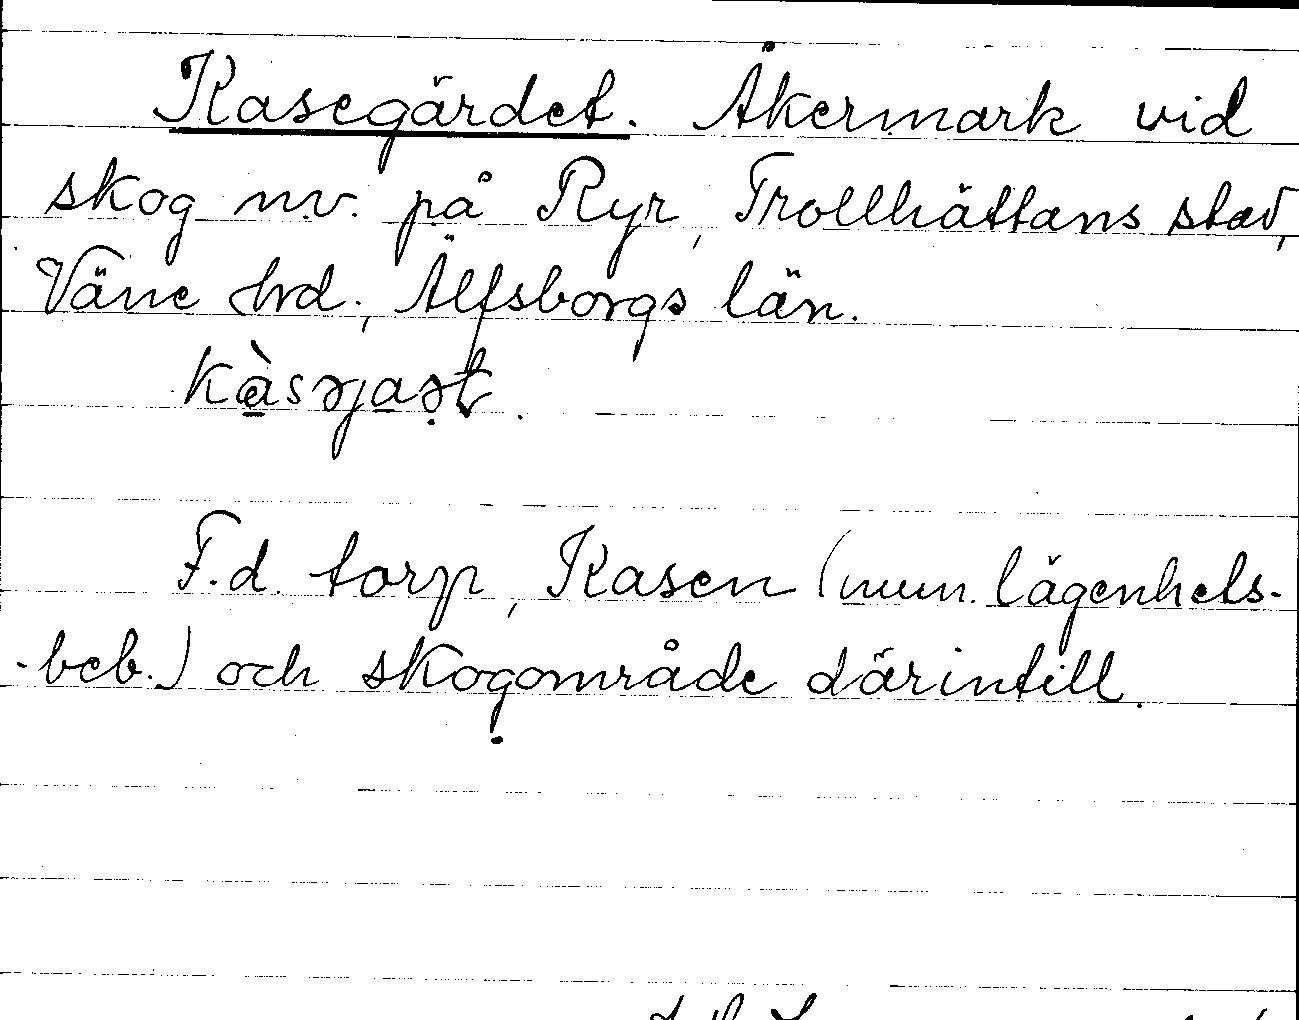 Kasegärdet. Åkermark vid
skog n.v. på Ryr, Trollhättans stad,
Väne hd., Älfsborgs län.
F.d. torp, Kasen (num. lägenhets-
-beb.) och skogområde därintill.